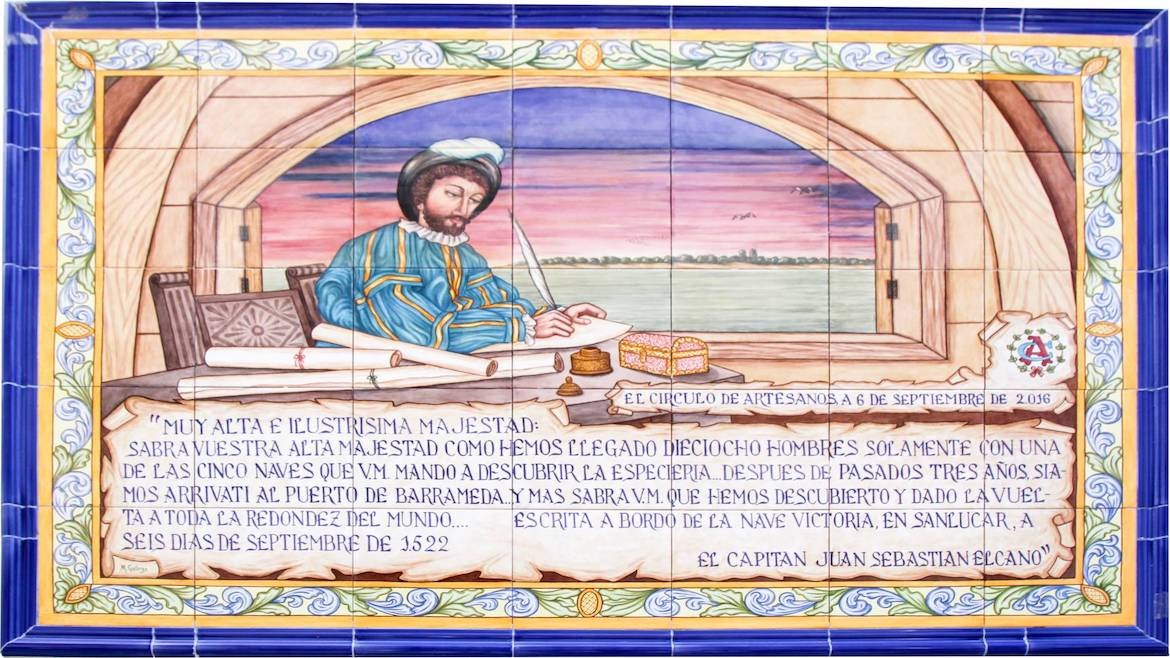 EL CIRCULO DE ARTESANOS, A 6 DE SEPTIEMBRE DE 2.016
"MUY ALTA E ILUSTRISIMA MAJESTAD:
SABRA VUESTRA ALTA MAJESTAD COMO HEMOS LLEGADO DIECIOCHO HOMBRES SOLAMENTE CON UNA
DE LAS CINCO NAVES QUE V.M. MANDO A DESCUBRIR LA ESPECIERIA... DESPUES DE PASADOS TRES AÑOS, SIA-
MOS ARRIVATI AL PUERTO DE BARRAMEDA..Y MAS SABRA V.M. QUE HEMOS DESCUBIERTO Y DADO LA VUEL-
TA A TODA LA REDONDEZ DEL MUNDO.... ESCRITA A BORDO DE LA NAVE VICTORIA, EN SANLUCAR, A
SEIS DIAS DE SEPTIEMBRE DE 1.522
EL CAPITAN JUAN SEBASTIAN ELCANO"